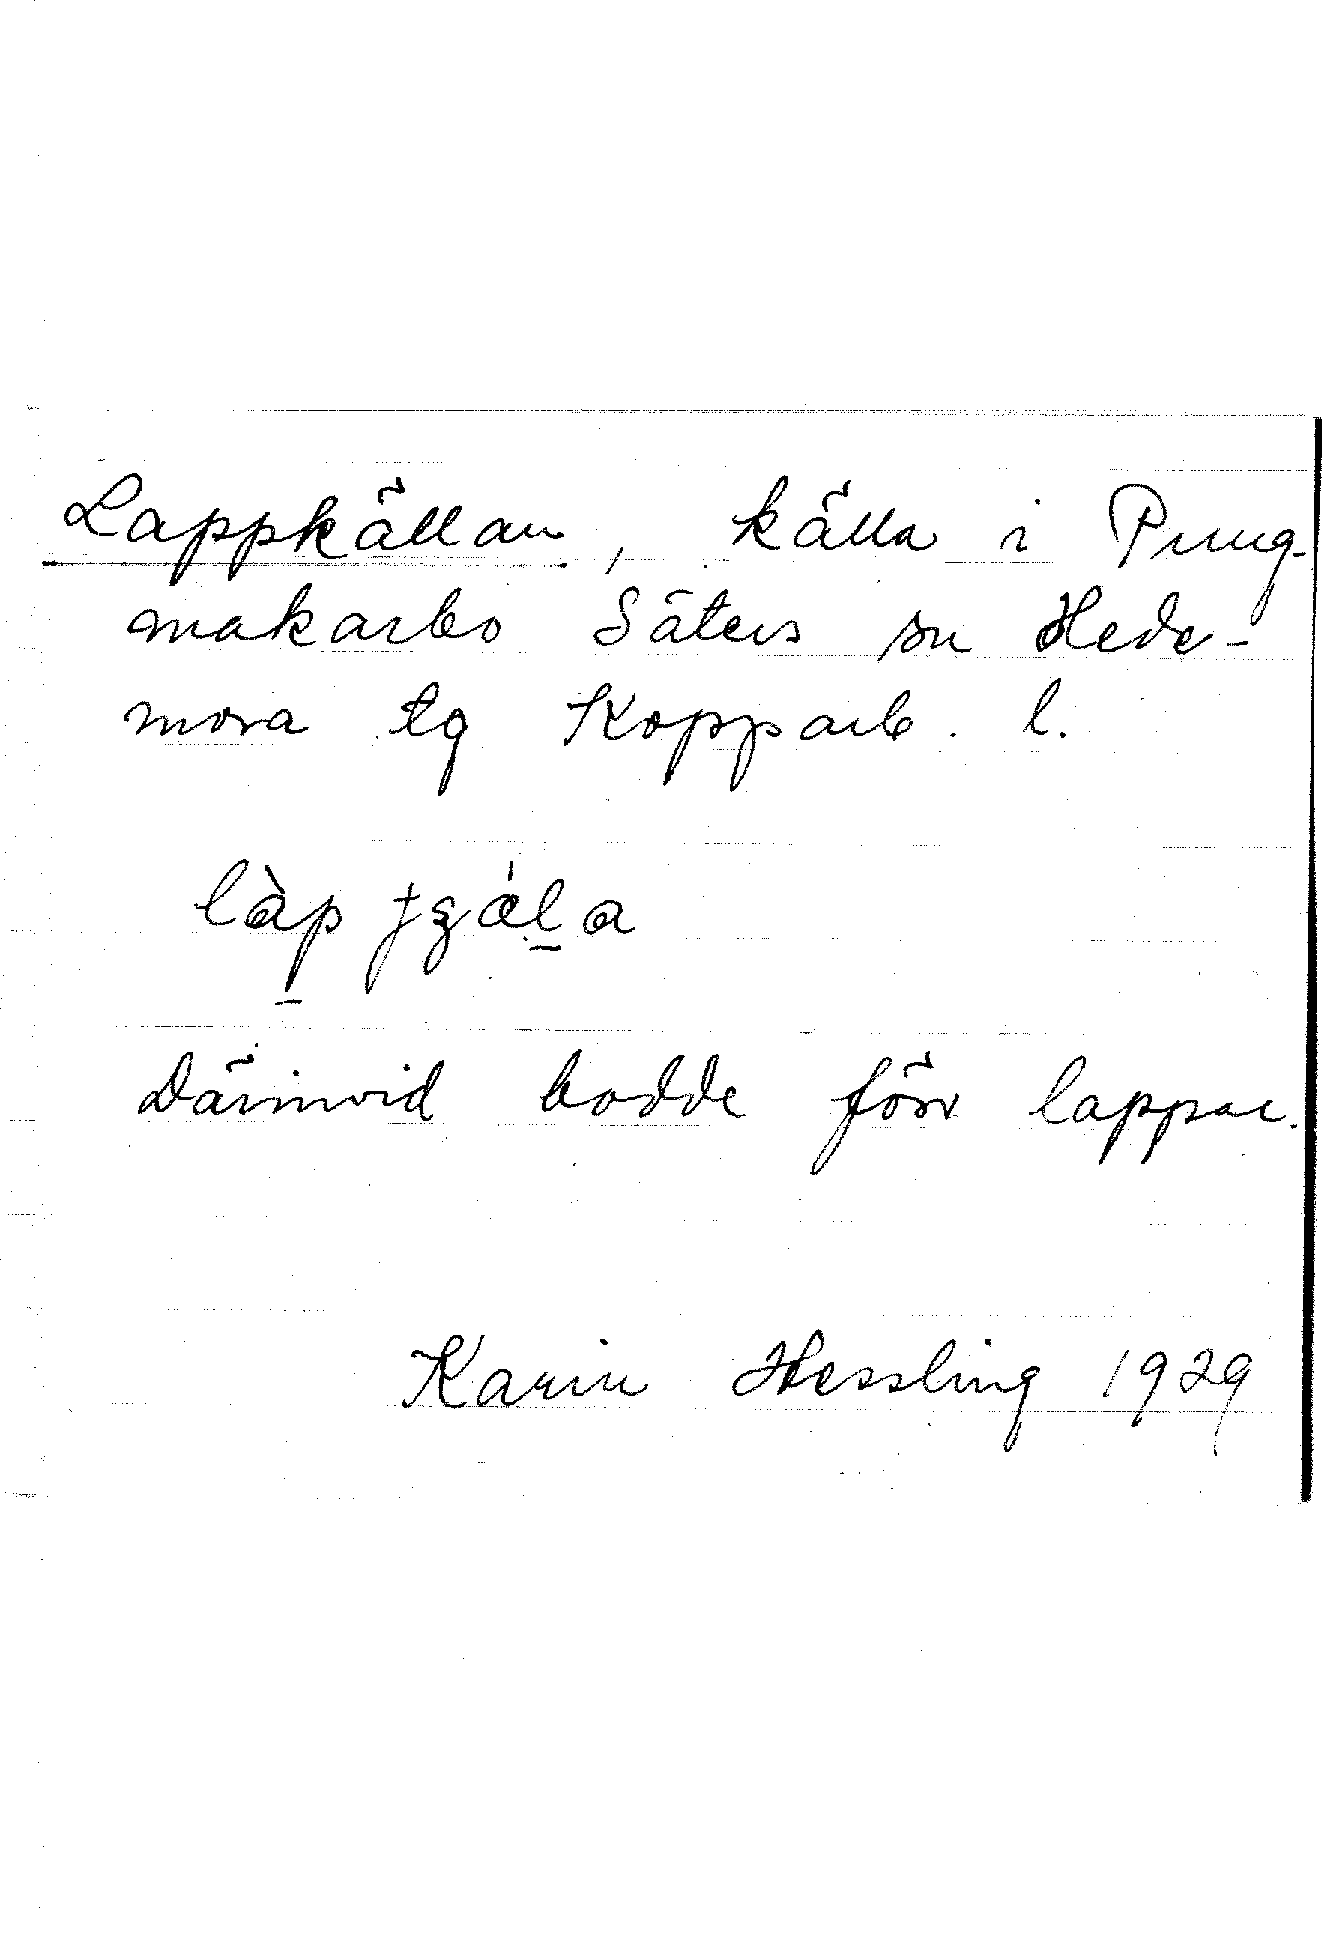 Lappkällan, källa i Pung-
makarbo Säters sn Hede-
mora tg Kopparb. l.
làp
Därinvid bodde förr lappar.
Karin Hessling 1929